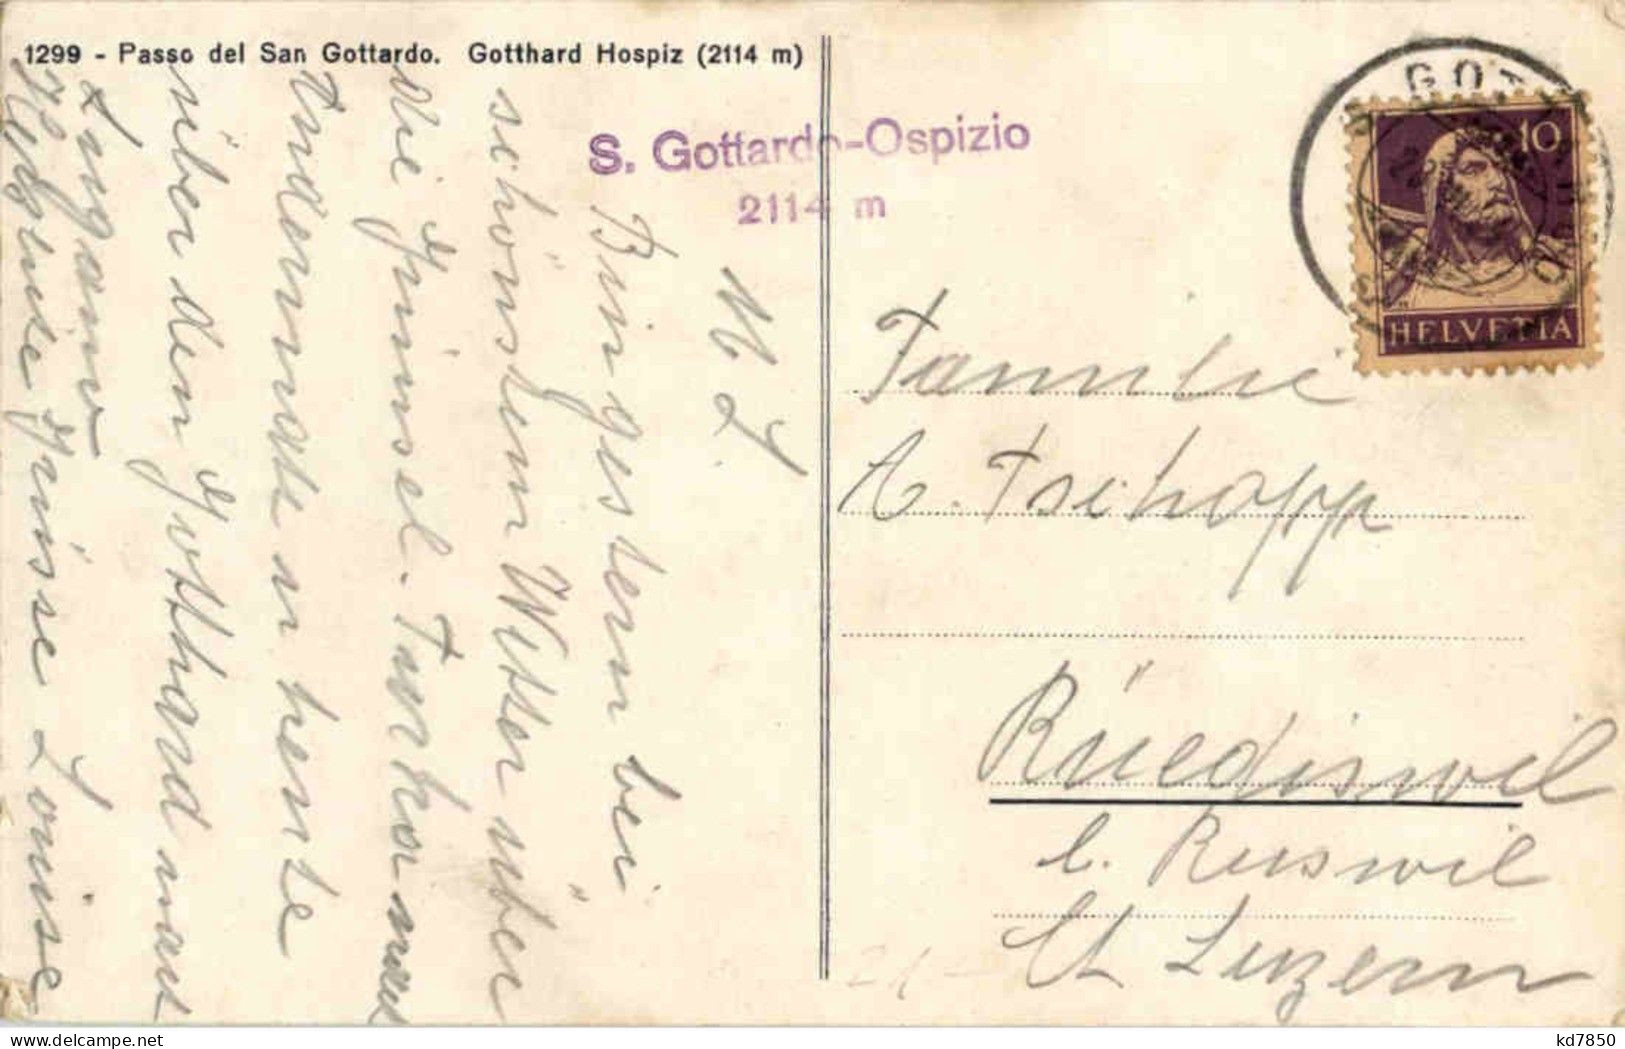 1299 - Passo del San Gottardo. Gotthard Hospiz (2114 m)
S. Gottardo-Ospizio
2114 m
10
HELVETIA
M L
Bin gestern bei
schönstem Wetter über
die Grimsel. Furka nach
Andermatt u heute
über den Gotthard nach
Lugano
Herzliche Grüsse Louise
Familie
A. Tschopp
Rüediswil
b. Ruswil
Ct Luzern
kd7850